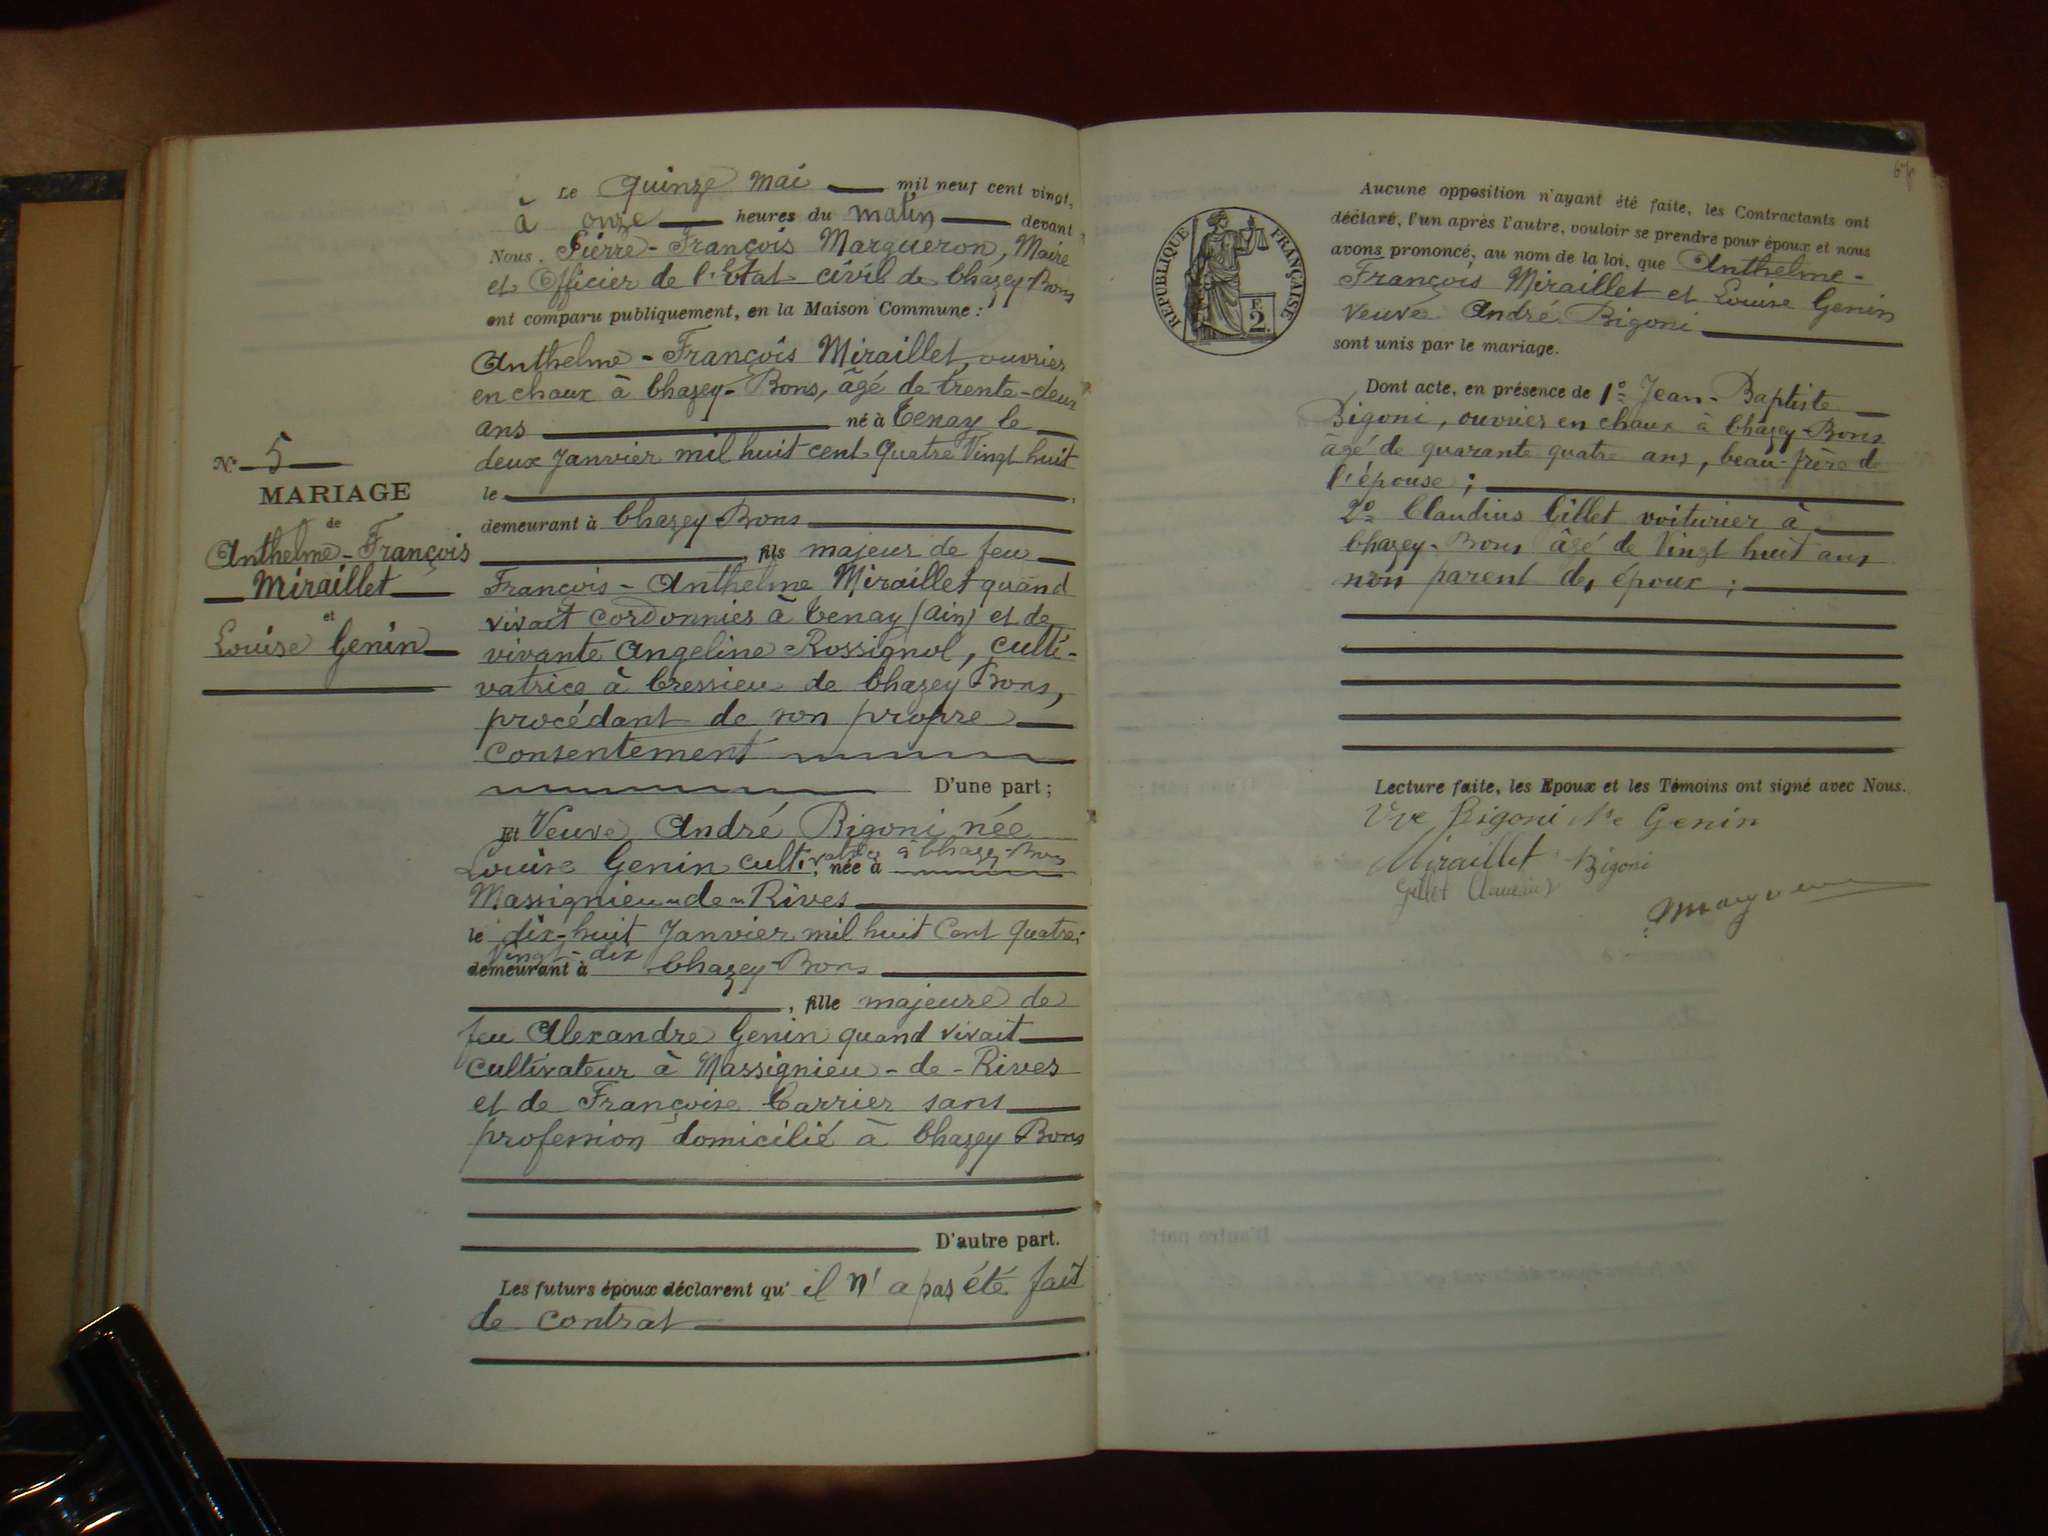 Le Quinze mai mil neuf cent vingt,
à onze heures du matin devant
Nous, Pierre-François Margueron, Maire
et Officier de l'Etat civil de Chazey-Bons
ont comparu publiquement, en la Maison Commune :
Anthelme-François Miraillet, ouvrier
en chaux à Chazey-Bons, âgé de trente-deux
ans né à Tenay le
deux Janvier mil huit cent Quatre Vingt huit
le ,
demeurant à Chazey-Bons
, fils majeur de feu
François-Anthelme Miraillet quand
vivait cordonnier à Tenay (Ain) et de
vivante Angeline Rossignol, culti-
vatrice à Cressieu de Chazey Bons,
procédant de son propre
consentement
D'une part ;
Et Veuve André Bigoni née
Louise Genin cultivatrice à Chazey-Bons, née à
Massignieu-de-Rives
le dix-huit Janvier mil huit Cent Quatre-
Vingt-dix
demeurant à Chazey-Bons
, fille majeure de
feu Alexandre Genin quand vivait
cultivateur à Massignieu-de-Rives
et de Françoise Carrier sans
profession domicilié à Chazey Bons
D'autre part.
Les futurs époux déclarent qu'il n'a pas été fait
de contrat
N° 5
MARIAGE
de
Anthelme-François
Miraillet
et
Louise Genin
RÉPUBLIQUE FRANÇAISE
F.
2.
Aucune opposition n'ayant été faite, les Contractants ont
déclaré, l'un après l'autre, vouloir se prendre pour époux et nous
avons prononcé, au nom de la loi, que Anthelme-
François Miraillet et Louise Genin
Veuve André Bigoni
sont unis par le mariage.
Dont acte, en présence de 1° Jean-Baptiste
Bigoni, ouvrier en chaux à Chazey-Bons
âgé de quarante quatre ans, beau-frère de
l'épouse ;
2° Claudius Gillet voiturier à
Chazey-Bons âgé de Vingt huit ans
non parent des époux ;
Lecture faite, les Epoux et les Témoins ont signé avec Nous.
Vve Bigoni Née Genin
Miraillet Bigoni
Gillet Claudius
Margueron